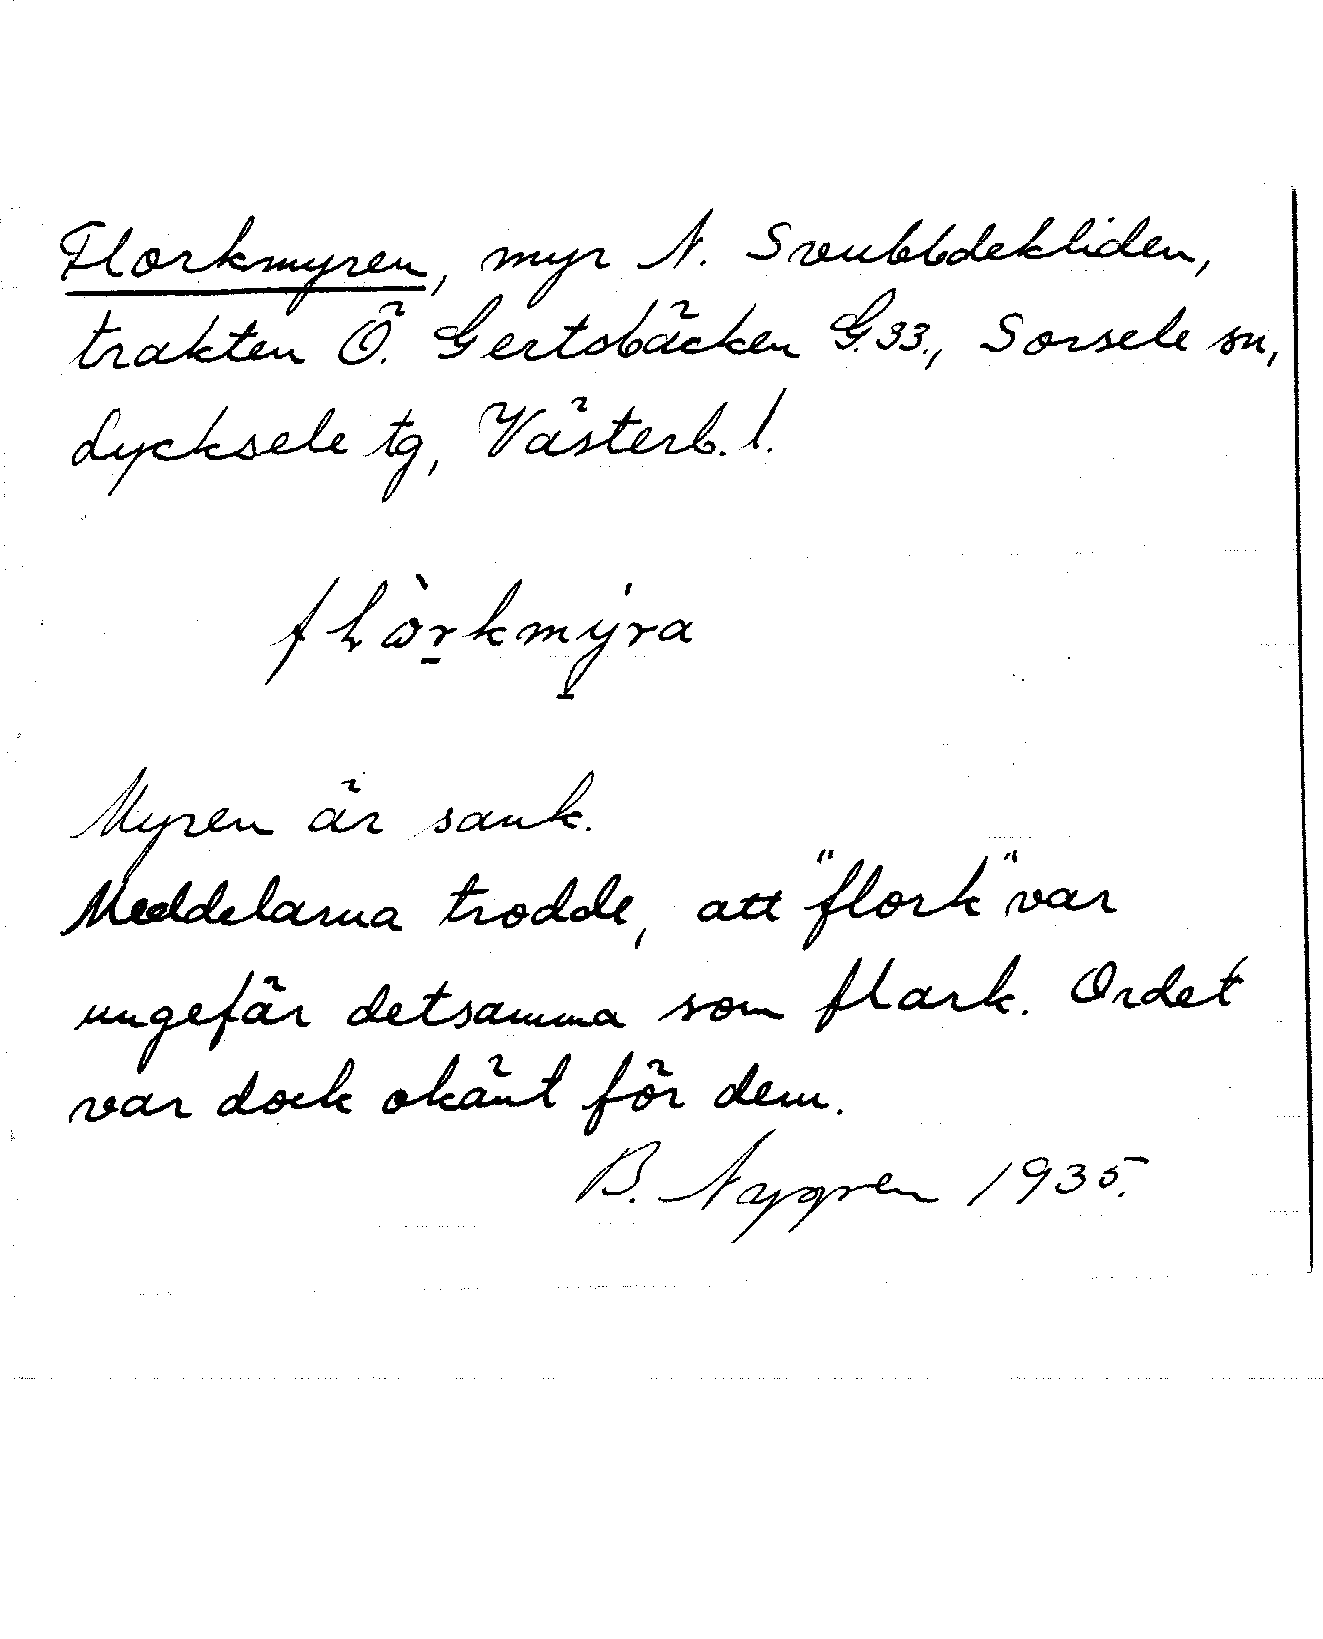 Florkmyren, myr N. Svubbdekliden,
trakten Ö. Gertsbäcken G.33., Sorsele sn,
Lycksele tg, Västerb. l.
flòrkmy̱ra
Myren är sank.
Meddelarna trodde, att "flork" var
ungefär detsamma som flark. Ordet
var dock okänt för dem.
B. Nygren 1935.